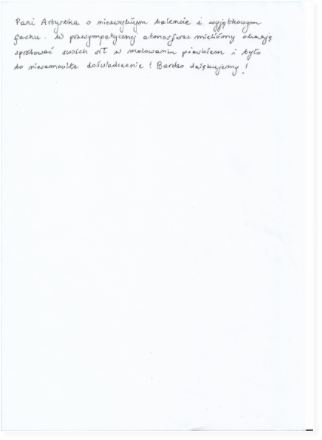 Pani Artystka o niezwykłym talencie i wyjątkowym
fachu. W przesympatycznej atmosferze mieliśmy okazję
spróbować swoich sił w malowaniu piaskiem i było
to niesamowite doświadczenie! Bardzo dziękujemy!